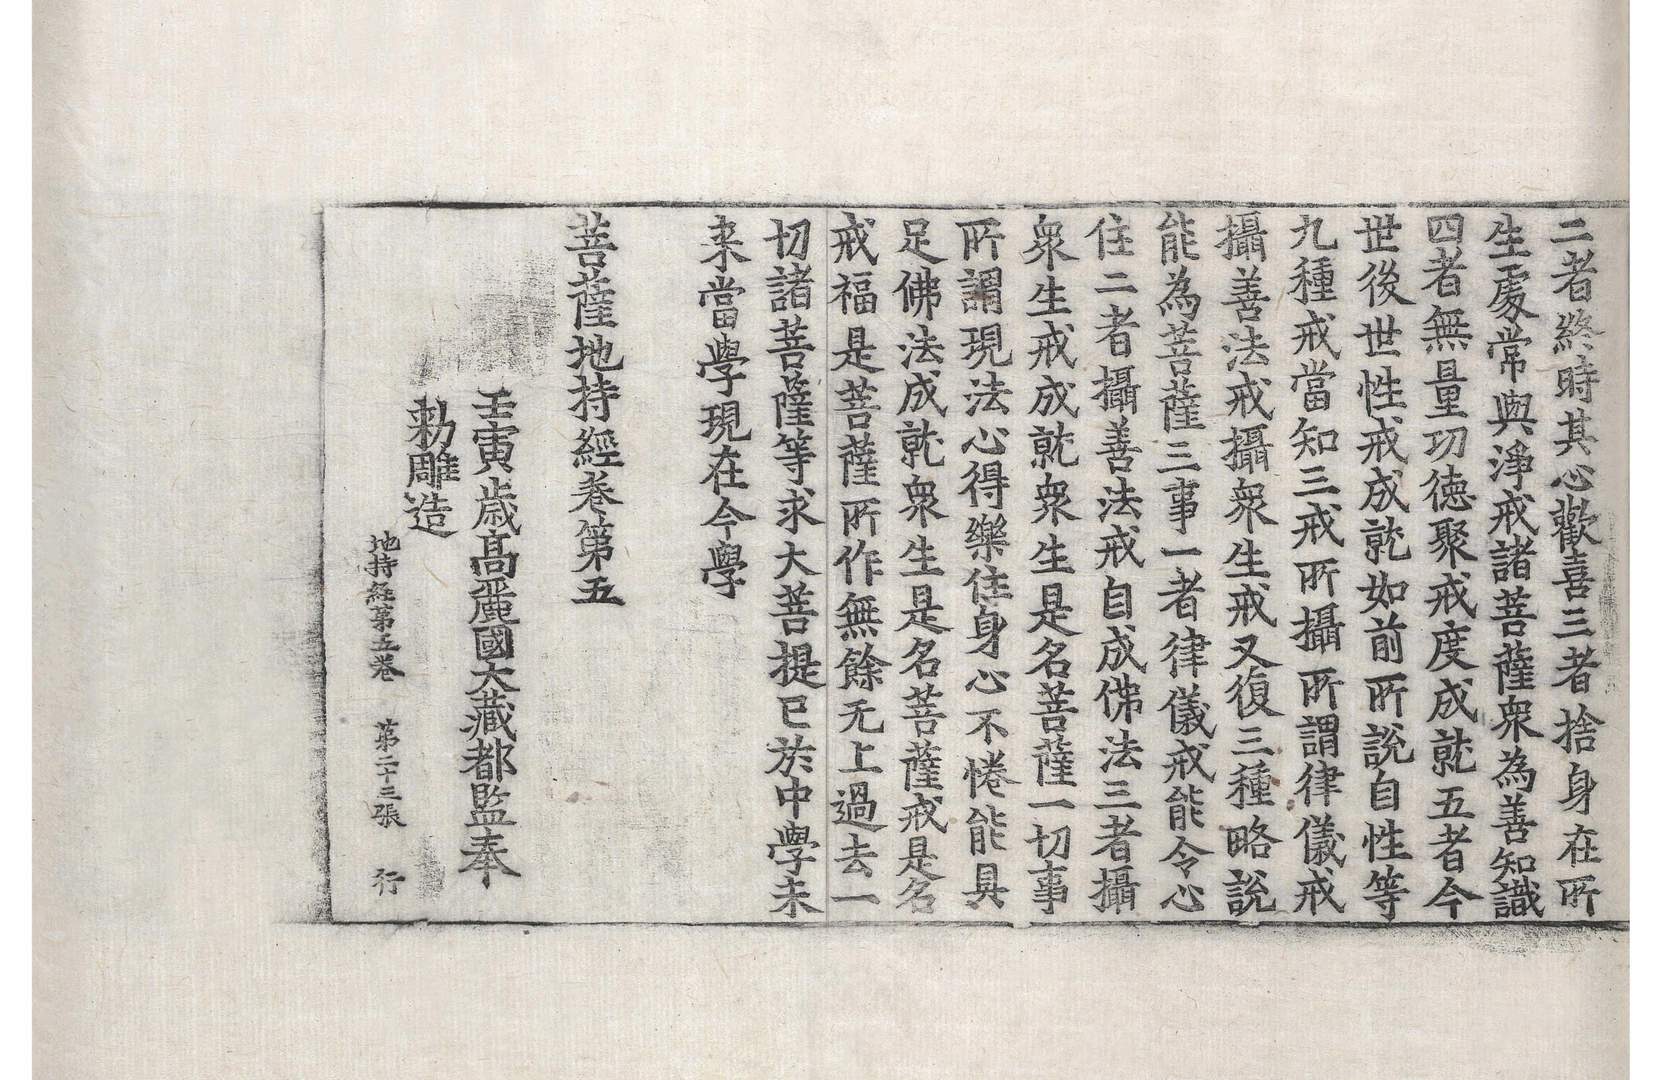 二者終時其心歡喜三者捨身在所
生處常與淨戒諸菩薩衆為善知識
四者無量功德聚戒度成就五者今
世後世性戒成就如前所說自性等
九種戒當知三戒所攝所謂律儀戒
攝善法戒攝衆生戒又復三種略說
能為菩薩三事一者律儀戒能令心
住二者攝善法戒自成佛法三者攝
衆生戒成就衆生是名菩薩一切事
所謂現法心得樂住身心不惓能具
足佛法成就衆生是名菩薩戒是名
戒福是菩薩所作無餘无上過去一
切諸菩薩等求大菩提已於中學未
来當學現在今學
菩薩地持經卷第五
壬寅歳高麗國大藏都監奉
勑雕造
地持經第五卷 第二十三張 行